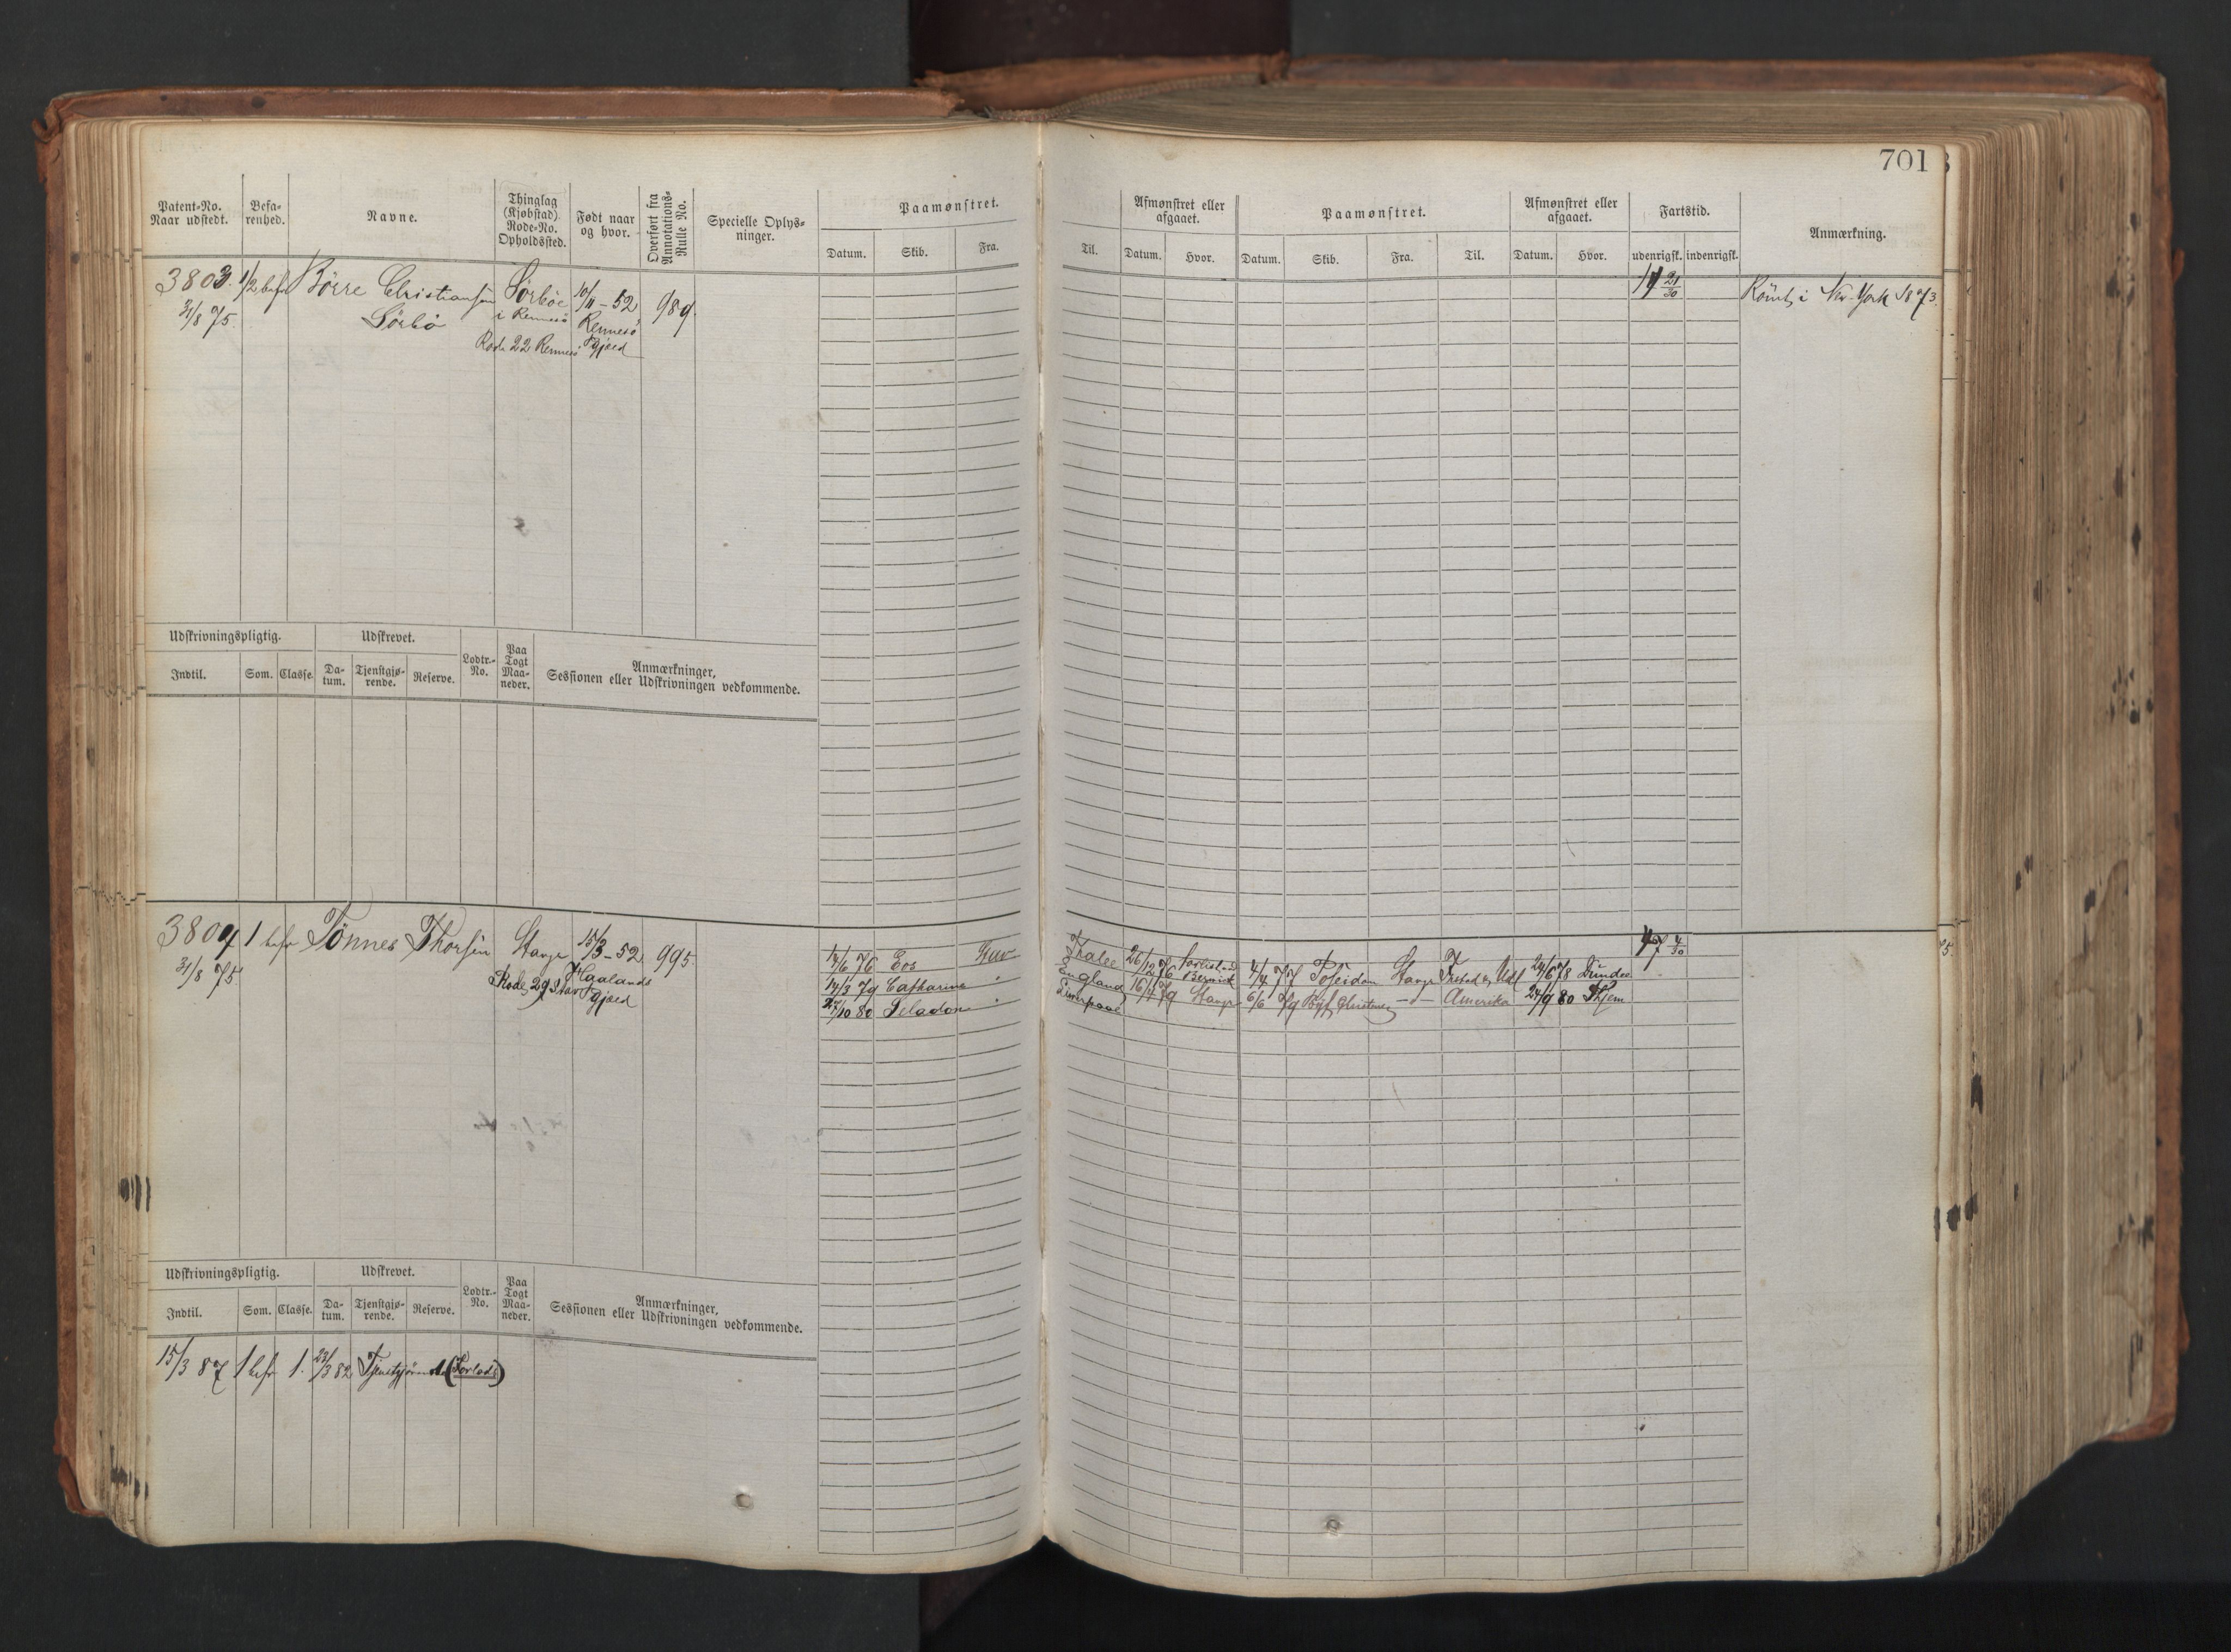 701
Patent-No. Naar udstedt.
Befarenhed.
Navne.
Thinglag (Kjøbstad) Rode-No. Opholdssted.
Født naar og hvor.
Overført fra Annotations-Rulle No.
Specielle Oplysninger.
Paamønstret.
Datum. Skib. Fra.
Til.
Afmønstret eller afgaaet.
Datum. Hvor.
Paamønstret.
Datum. Skib. Fra. Til.
Afmønstret eller afgaaet.
Datum. Hvor.
Fartstid.
udenrigsk. indenrigsk.
Anmærkning.
3803. 1/2 befr Börre Christiansen Sörböe 10/11-52 989.
31/8 75. Sörbö i Rennesö Rennesö
Rode 22 Rennesö Pgjæld
21/30 Römt i New-York 1873.
Udskrivningspligtig. Udskrevet.
Indtil. Som. Classe. Datum. Tjenstgjørende. Reserve. Lodtr.-No. Paa Togt Maaneder.
Anmærkninger, Sessionen eller Udskrivningen vedkommende.
3804 1 befr Tönnes Thorsen Stavgr 15/3-52 995.
31/8 75. Haalands
Rode 29 Stav Pgjæld
14/6 76 Eos Stav Tralee 26/12 76 4/4 77 Poseidon Stavgr 24/6 78 Dundee 4/30
14/3 79 Catharine " England 16/ 79 Stavgr 6/6 79 Christine -"- Amerika 24/9 80 Hjem
27/10 80 Seladon " Liverpool
Udskrivningspligtig. Udskrevet.
Indtil. Som. Classe. Datum. Tjenstgjørende. Reserve. Lodtr.-No. Paa Togt Maaneder.
Anmærkninger, Sessionen eller Udskrivningen vedkommende.
15/3 87 1 befr 1. 23/3 82